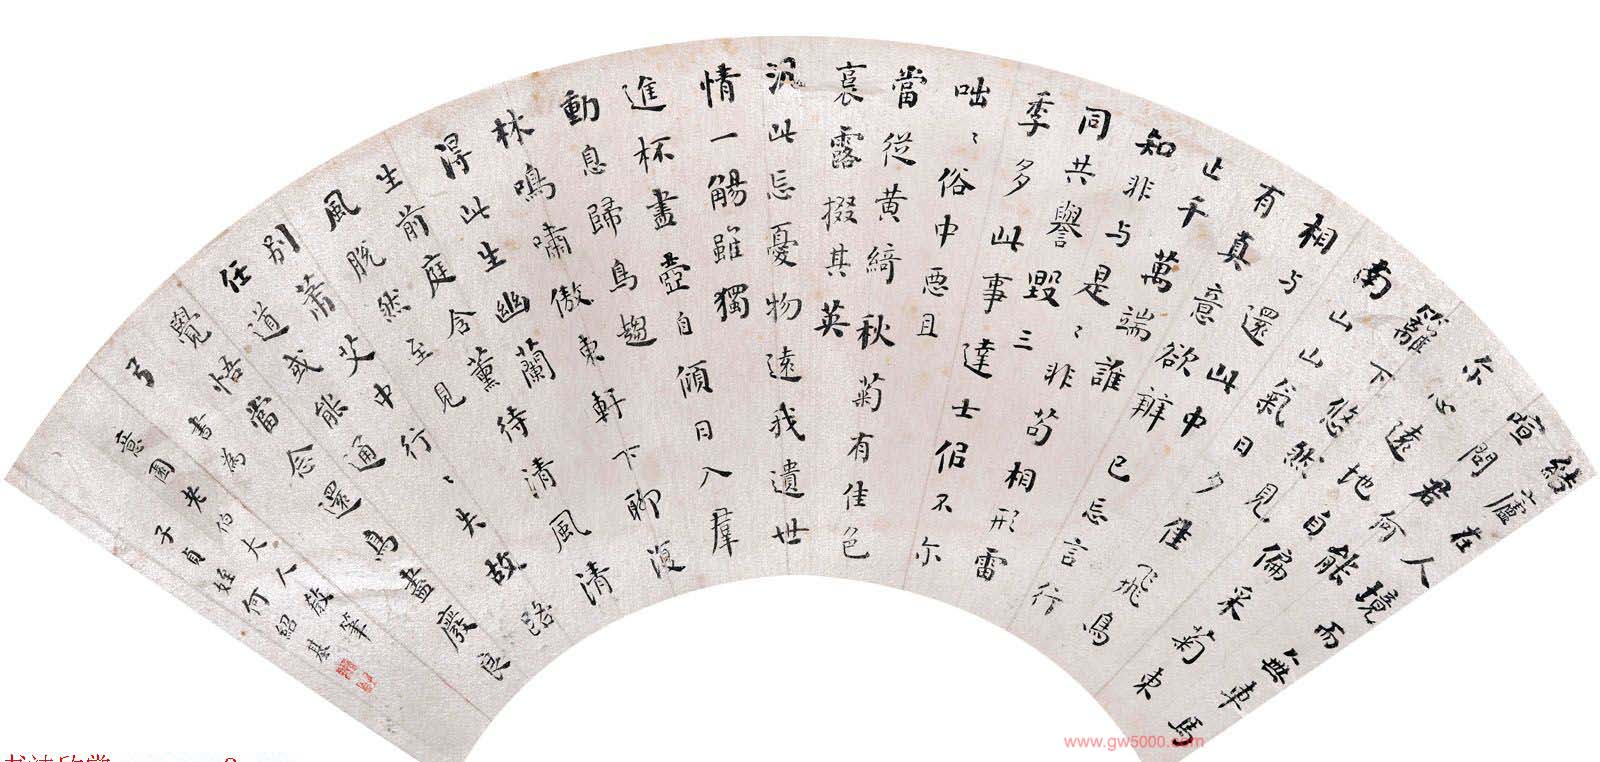 結廬在人境而無車馬
喧問君何能
尔心遠地自偏采菊東
籬下悠然見
南山山氣日夕佳飛鳥
相与還此中
有真意欲辨已忘言行
止千萬端誰
知非与是〻非苟相形雷
同共譽毀三
季多此事達士佀不尔
咄〻俗中惡且
當從黃綺秋菊有佳色
裛露掇其英
汎此忘憂物遠我遺世
情一觴雖獨
進杯盡壺自傾日入羣
動息歸鳥趨
林鳴嘯傲東軒下聊復
得此生幽蘭
生前庭含薰待清風清
風脫然至見
別蕭艾中行〻失故路
任道或能通
覺悟當念還鳥盡廢良
弓 書為
意園老伯大人教筆
子貞姪何紹基
www.gw5000.com